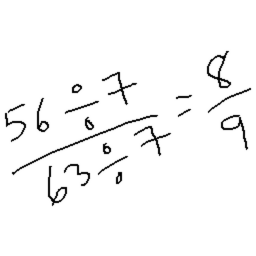 56 ÷ 7 / 63 ÷ 7 = 8 / 9